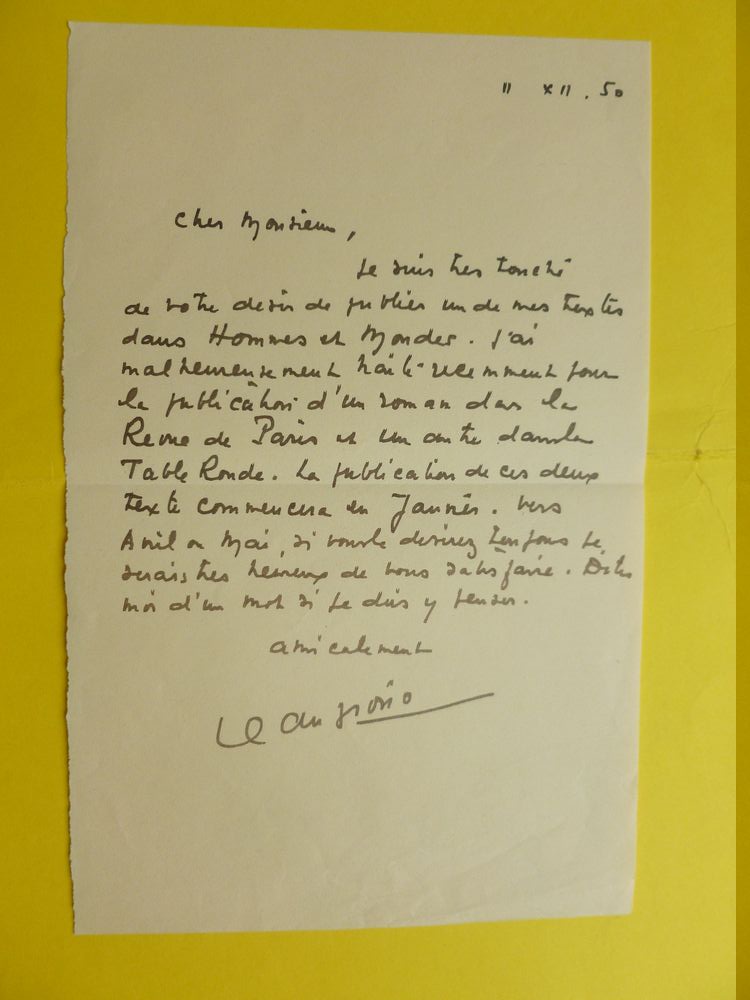 11 XII. 50
Cher Monsieur,
Je suis très touché
de votre désir de publier un de mes textes
dans Hommes et Mondes. J'ai
malheureusement traité récemment pour
la publication d'un roman dans la
Revue de Paris et un autre dans la
Table Ronde. La publication de ces deux
texte commencera en Janvier. Vers
Avril ou Mai, si vous le désirez toujours je
serais très heureux de vous satisfaire. Dites
moi d'un mot si je dois y penser.
amicalement
Jean Giono